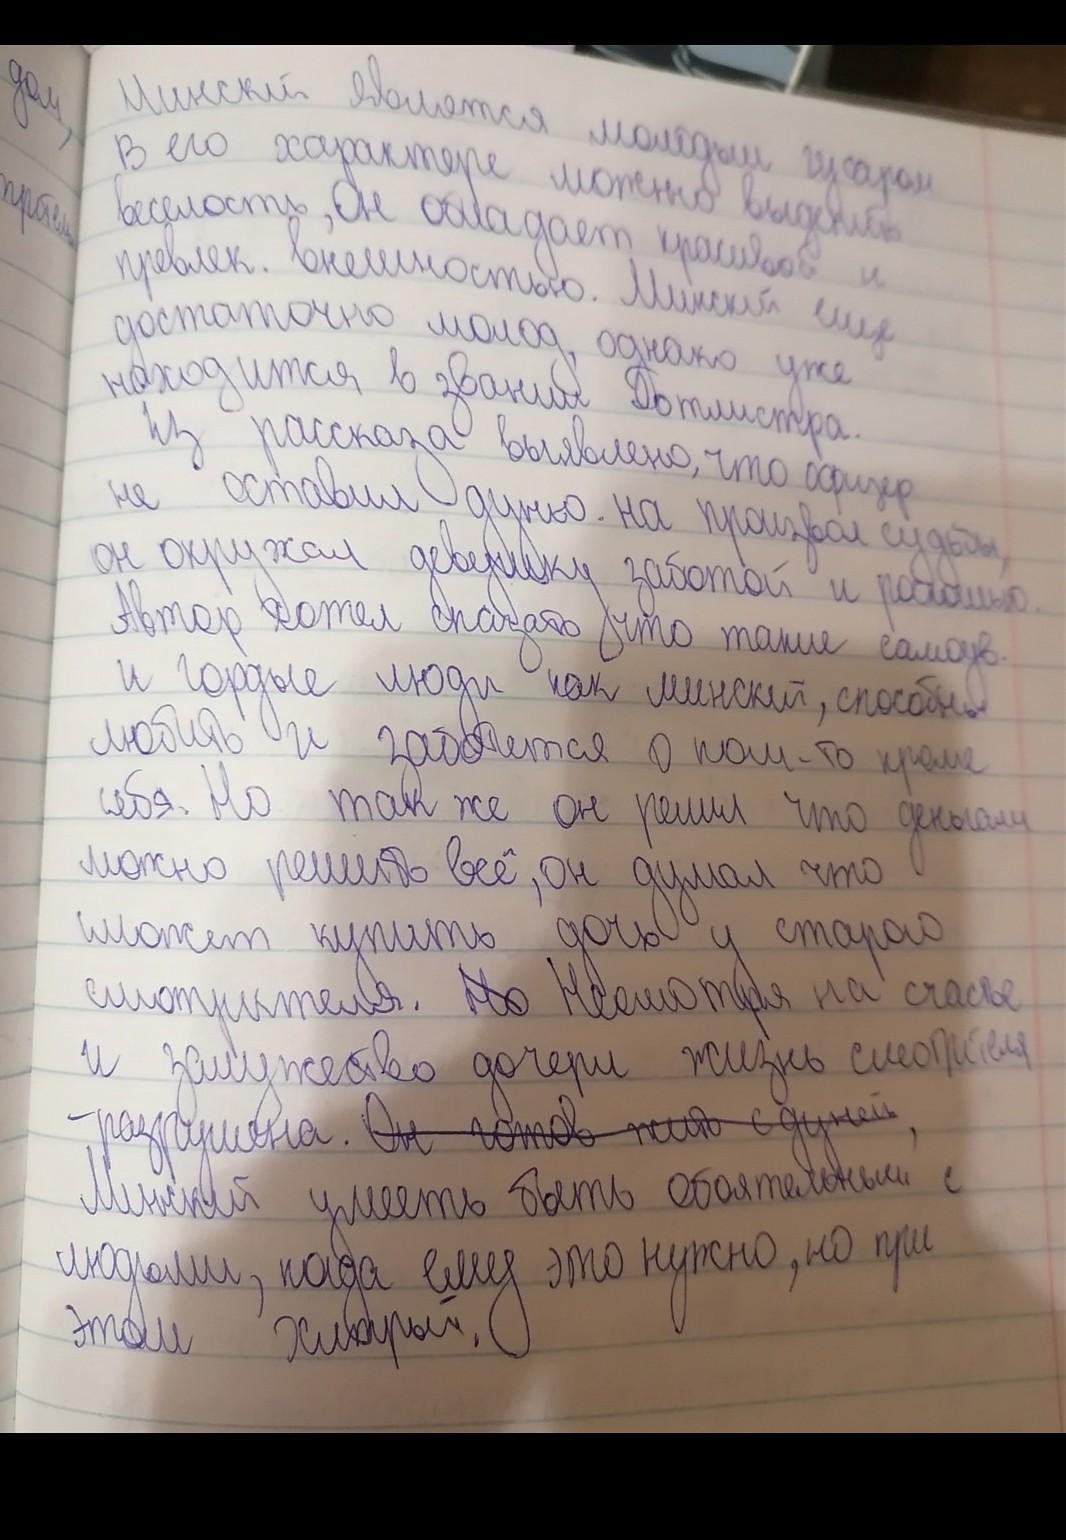 дом,
Минский является молодым гусаром
В его характере можно выделить
веселость, Он обладает красивой и
превлек. внешностью. Минский еще
достаточно молод, однако уже
находится в звании Ротмистра.
Из рассказа выявлено, что офицер
не оставил дуню на произвол судьбы,
он окружал девушку заботой и роскошью.
Автор хотел сказать что такие самоув.
и гордые люди как минский, способны
любить и заботется о ком-то кроме
себя. Но так же он решил что деньгами
можно решить всё, он думал что
сможет купить дочь у старого
смотрителя. Но Несмотря на счастье
и замужество дочери жизнь смотрителя
разрушена. Он готов жить с дуней,
Минский умееть быть обоятельным с
людьми, когда ему это нужно, но при
этом хитрый.